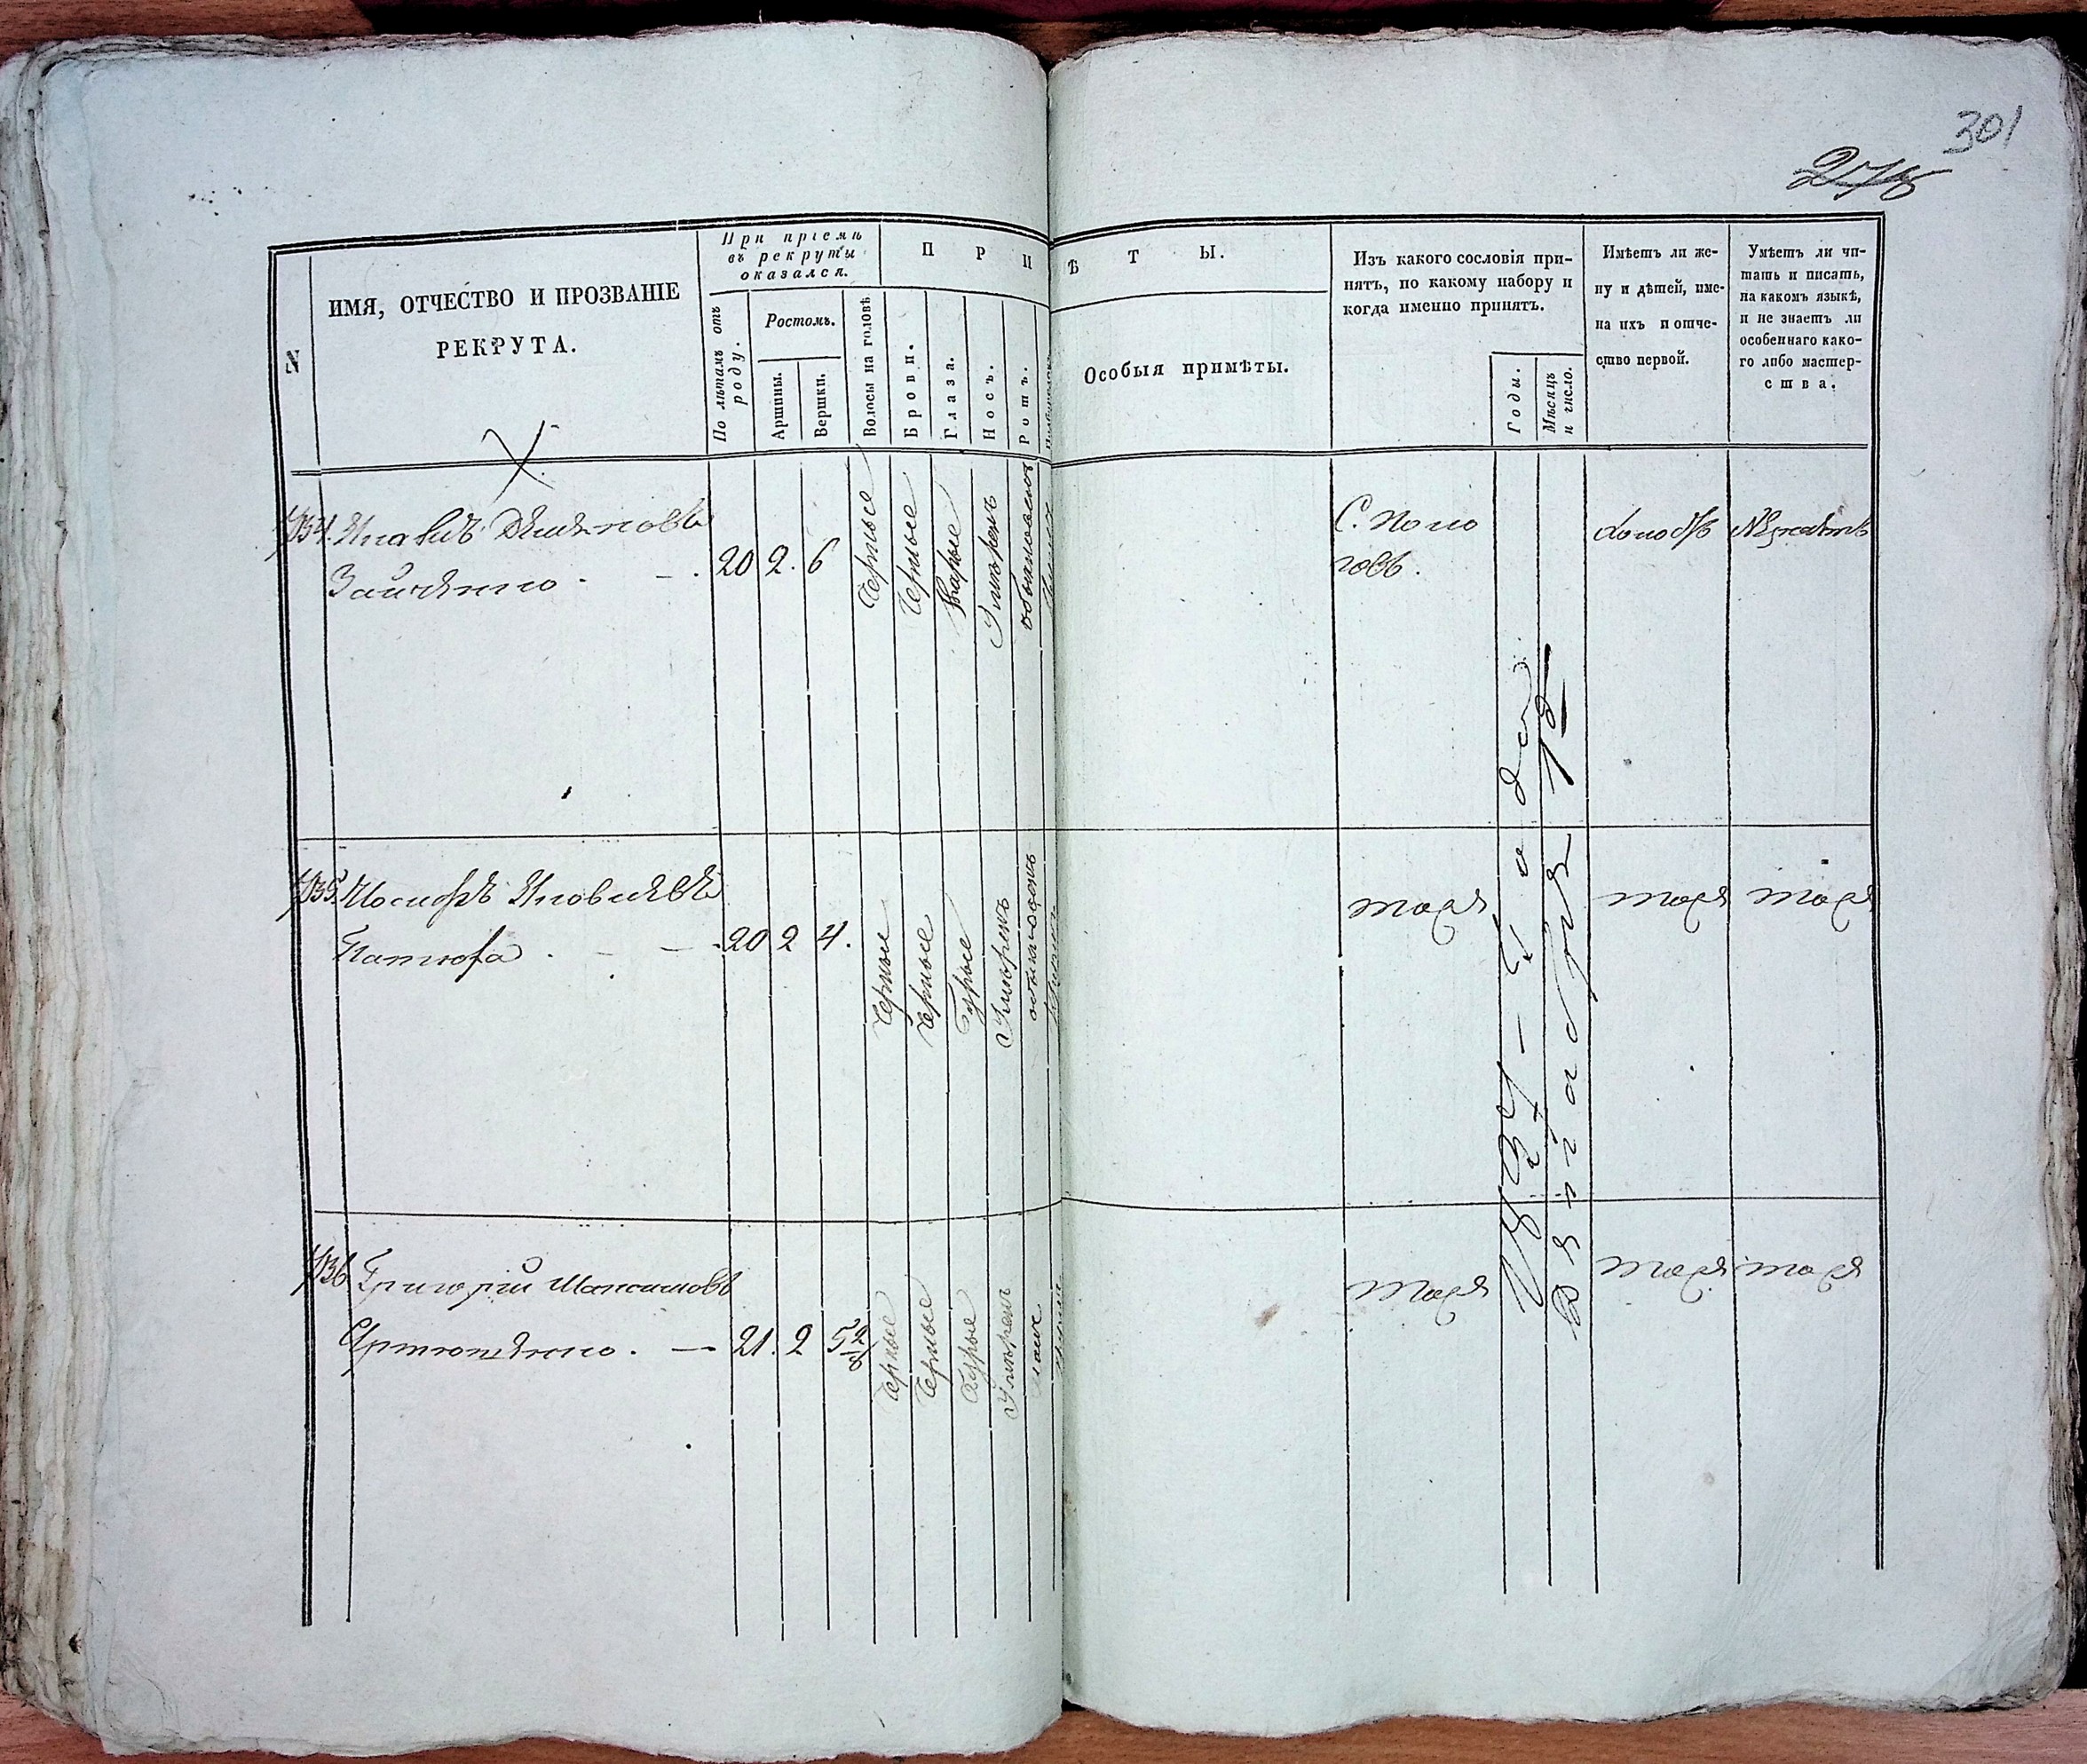 301
275
N
ИМЯ, ОТЧЕСТВО И ПРОЗВАНІЕ
РЕКРУТА.
При пріемѣ
въ рекруты
оказался.
По лѣтамъ отъ
роду.
Ростомъ.
Аршины.
Вершки.
П Р И
Волосы на головѣ
Брови.
Глаза.
Носъ.
Ротъ.
Ѣ Т Ы.
Особыя примѣты.
Изъ какого сословія при-
нятъ, по какому набору и
когда именно принятъ.
Годы.
Мѣсяцъ
и число.
Имѣетъ ли же-
ну и дѣтей, име-
на ихъ и отче-
ство первой.
Умѣетъ ли чи-
тать и писать,
на какомъ языкѣ,
и не знаетъ ли
особеннаго како-
го либо мастер-
ства.
Заиченко
20 2. 6
Черные
Черные
Карые
Умѣренъ
обыкновенъ
холостъ
Незнаетъ
Иосифъ Яковлевъ
20 2 4.
Черные
Черные
Сурые
Умѣренъ
тоже
тоже
тоже
Григорій Максимовъ
Артюшенко. —
21. 2 5 2/8
Черные
Черные
Умѣренъ
тоже
тоже
тоже
Года
Января 12